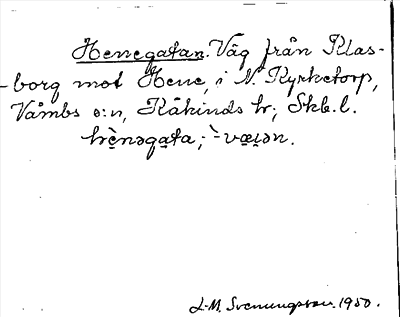 Henegatan. Väg från Klas-
-borg mot Hene, i N. Kyrketorp,
Våmbs s:n, Kåkinds hr; Skb.l.
hènəgata; `-væ̱i̱ən.
L-M. Svenungsson. 1950.